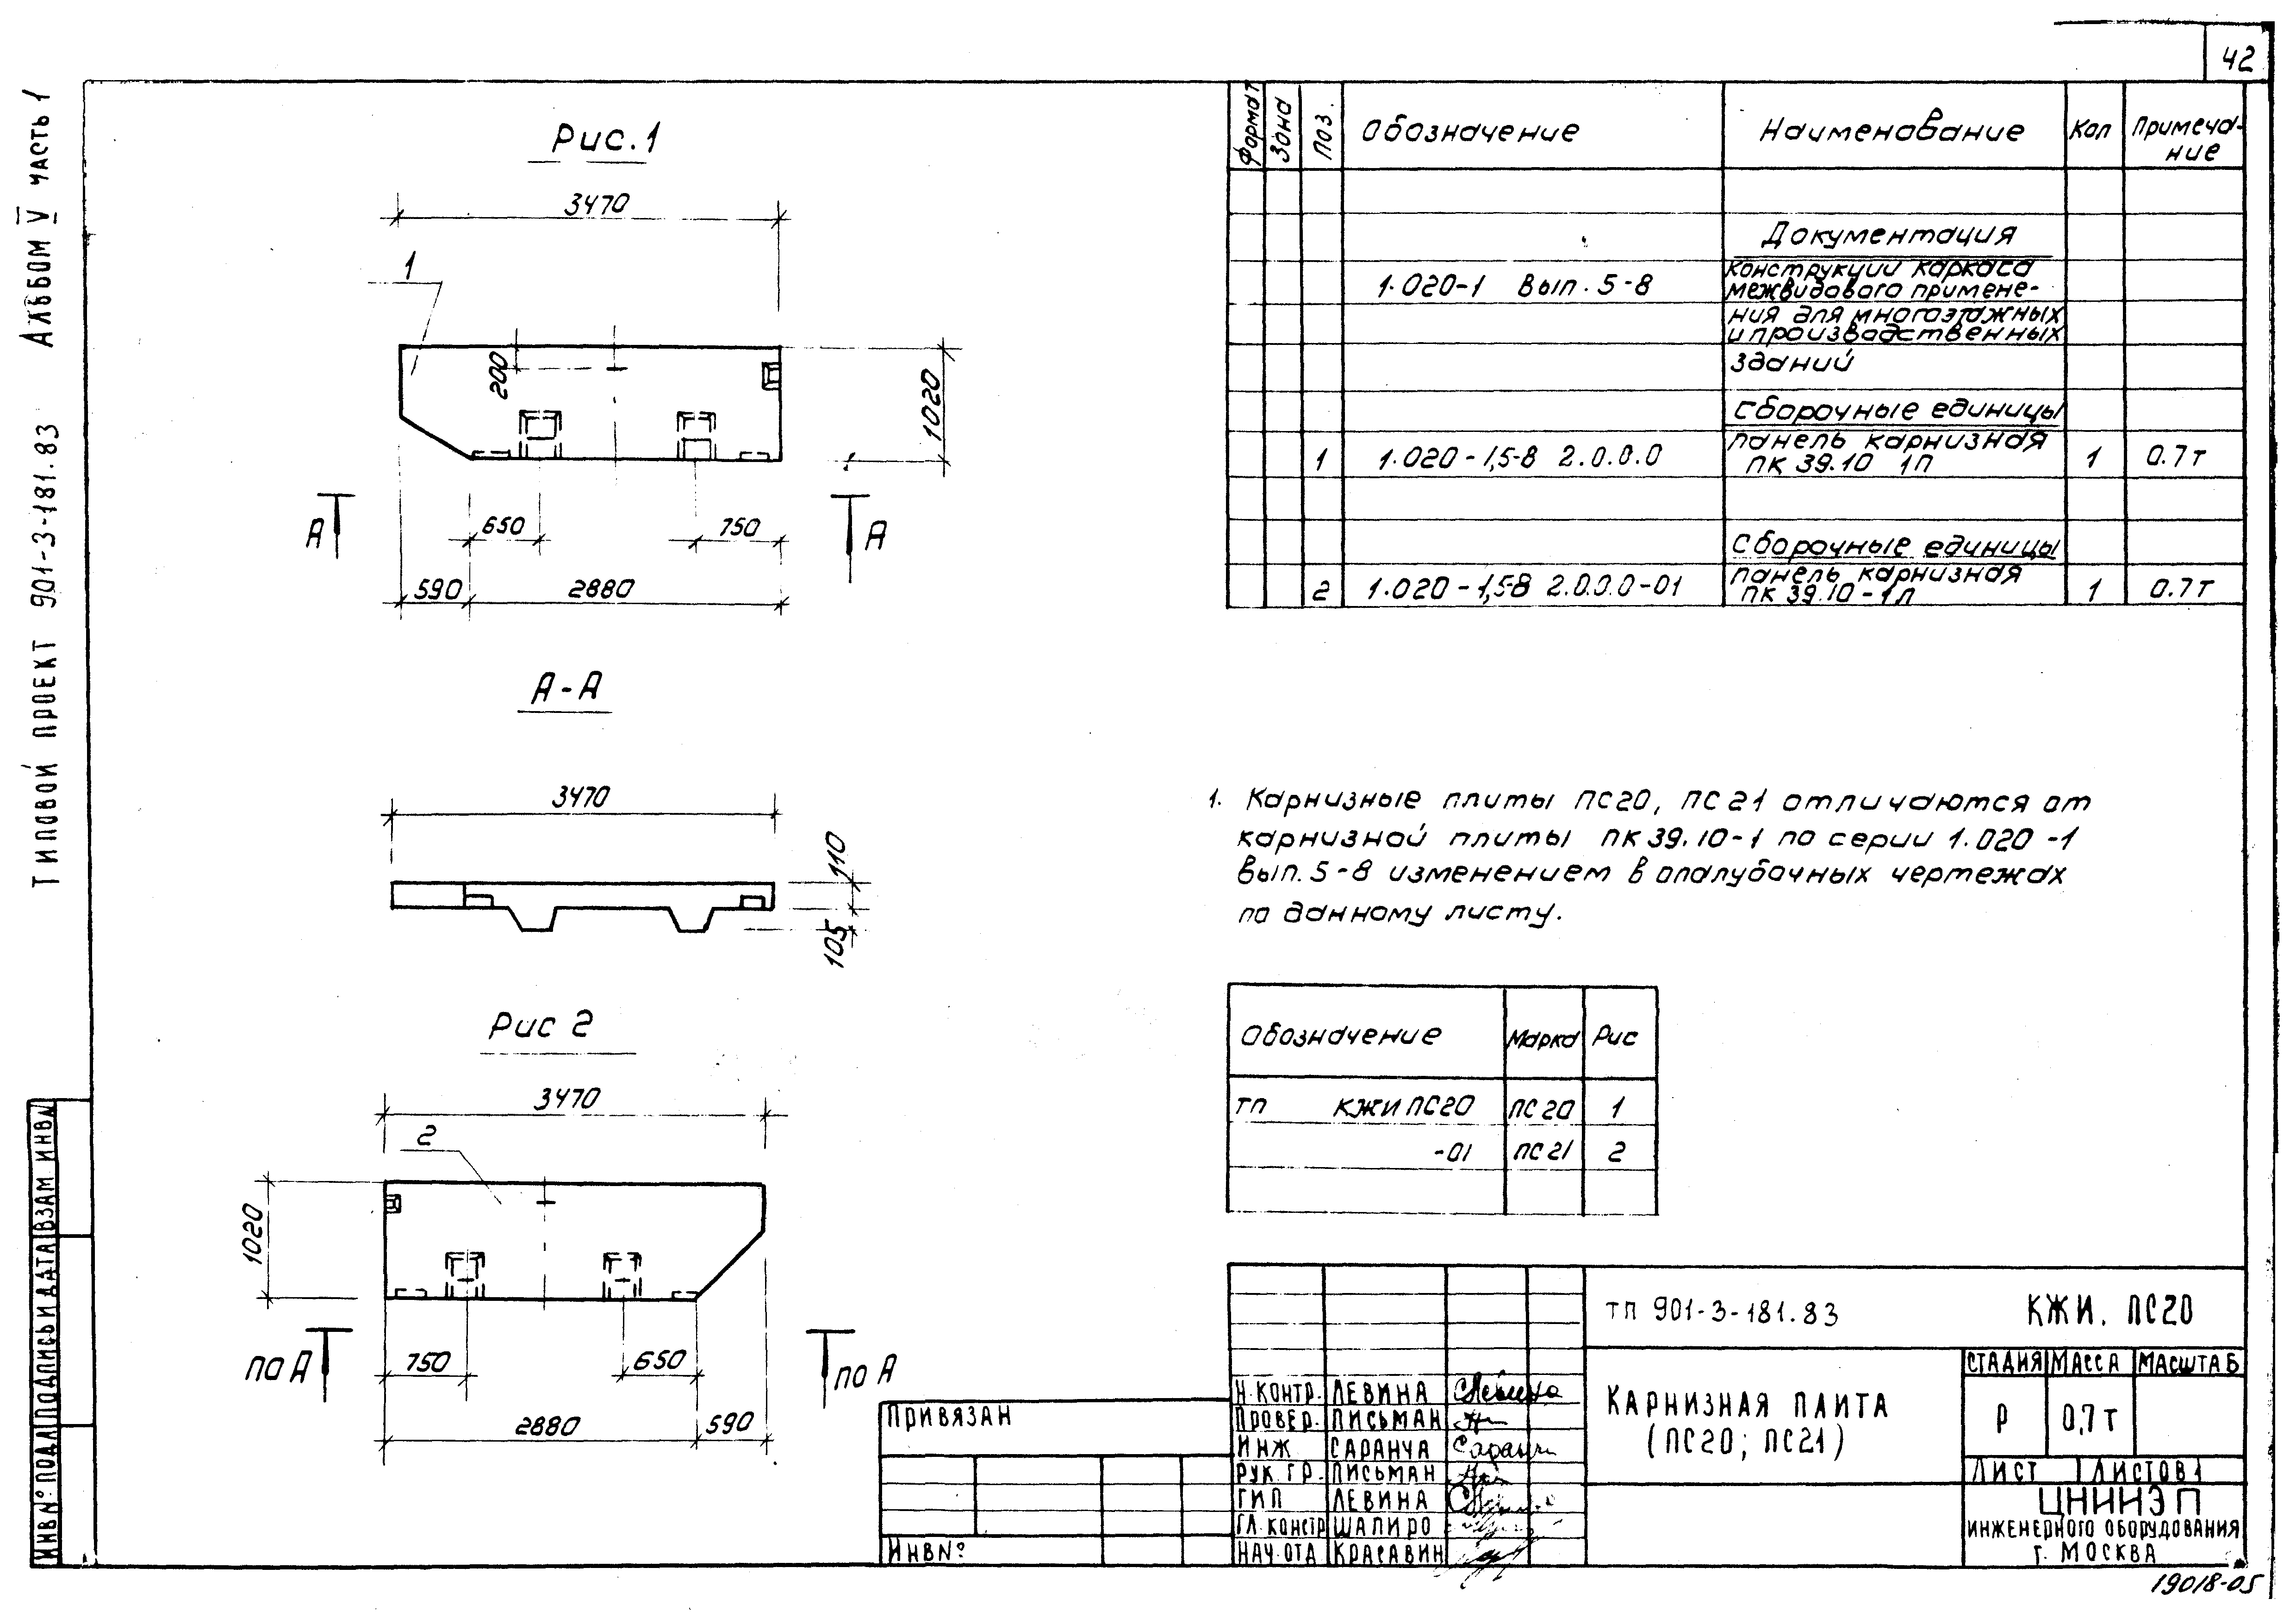 42
Типовой проект 901-3-181.83 Альбом V часть 1
Рис. 1
3470
1
200
1020
А
А
650
750
590
2880
А-А
3470
110
105
Рис 2
3470
2
1020
по А
по А
750
650
2880
590
Формат Зона Поз. Обозначение Наименование Кол Примеча-
ние
Документация
1.020-1 Вып. 5-8 конструкции каркаса
межвидового примене-
ния для многоэтажных
и производственных
зданий
Сборочные единицы
1 1.020-1,5-8 2.0.0.0 панель карнизная 1 0.7т
ПК 39.10 1П
Сборочные единицы
2 1.020-1,5-8 2.0.0.0-01 панель карнизная 1 0.7т
ПК 39.10-1Л
1. Карнизные плиты ПС20, ПС21 отличаются от
карнизной плиты ПК39.10-1 по серии 1.020-1
Вып. 5-8 изменением в опалубочных чертежах
по данному листу.
Обозначение Марка Рис
ТП КЖИ ПС20 ПС20 1
-01 ПС21 2
ИНВ№ПОДЛ ПОДПИСЬ И ДАТА ВЗАМ ИНВ№
ПРИВЯЗАН
ИНВ№
ТП 901-3-181.83 КЖИ. ПС20
Н.КОНТР. ЛЕВИНА
ПРОВЕР. ПИСЬМАН
ИНЖ САРАНЧА
РУК.ГР. ПИСЬМАН
ГИП ЛЕВИНА
ГЛ.КОНСТР ШАПИРО
НАЧ.ОТД КРАСАВИН
КАРНИЗНАЯ ПЛИТА
(ПС20; ПС21)
СТАДИЯ МАССА МАСШТАБ
Р 0,7т
ЛИСТ ЛИСТОВ 1
ЦНИИЭП
ИНЖЕНЕРНОГО ОБОРУДОВАНИЯ
г. МОСКВА
19018-05